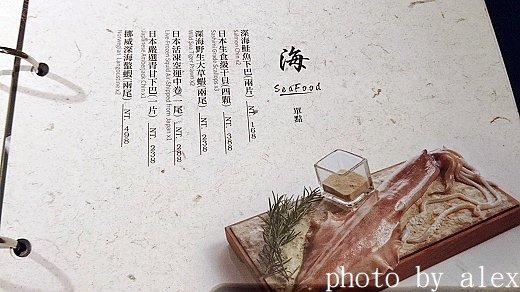 海
SeaFood
單點
深海鮭魚下巴(兩片) NT. 168
Salmon Chin x2
日本生食級干貝(四顆) NT. 388
深海野生大草蝦(兩尾) NT. 238
Wild Sea Tiger Prawn x2
日本活凍空運中卷(一尾) NT. 288
日本嚴選青甘下巴(一片) NT. 238
挪威深海螯蝦(兩尾) NT. 498
Norwegian Langoustine x2
photo by alex